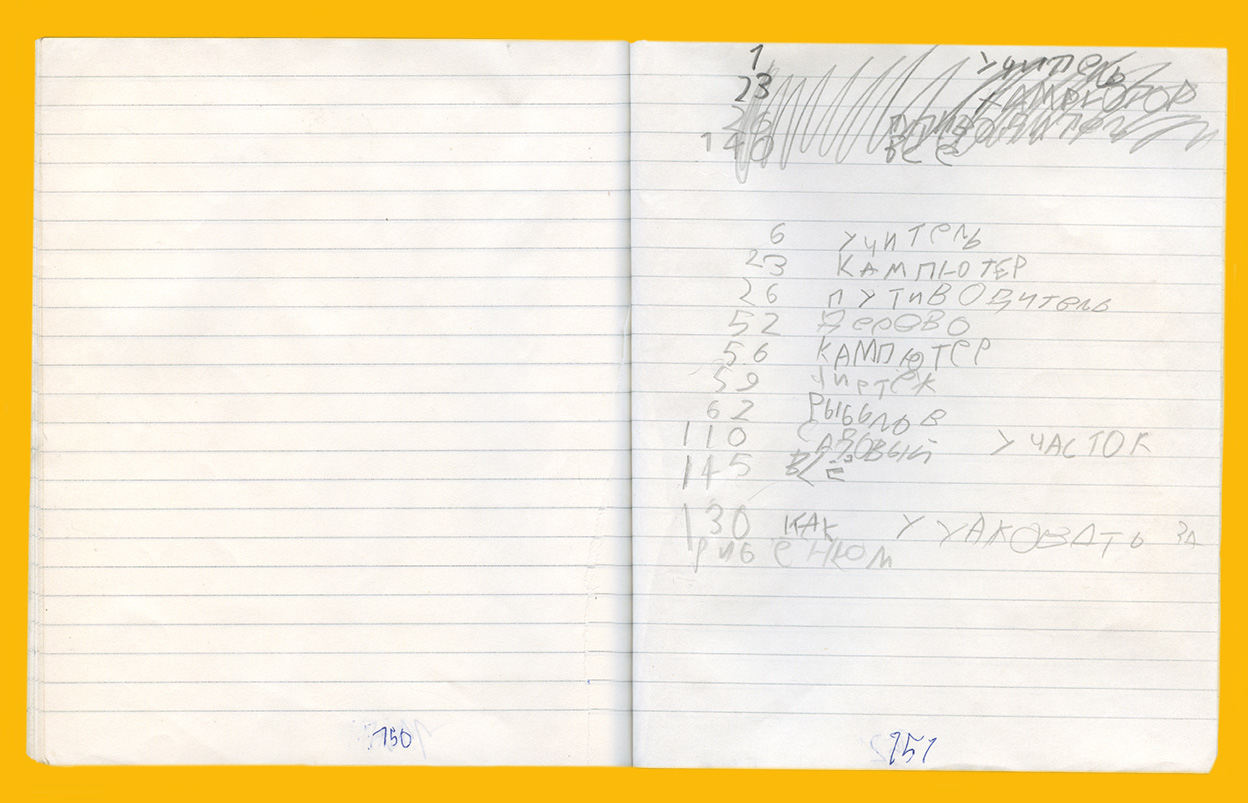 1 учитель
23 КАМПЮТОР
26
140 ВСЁ
6 УЧИТель
23 КАМПЮТЕР
26 ПУТИВОДИТель
52 ДерОВО
56 КАМПЮТер
59 Чиртёж
62 РЫБЬЛОВ
110 САДОВЫЙ УЧАСТОК
145 ВСЁ
130 КАК УУАКОВАТЬ ЗА
рибёНКОМ
150
151